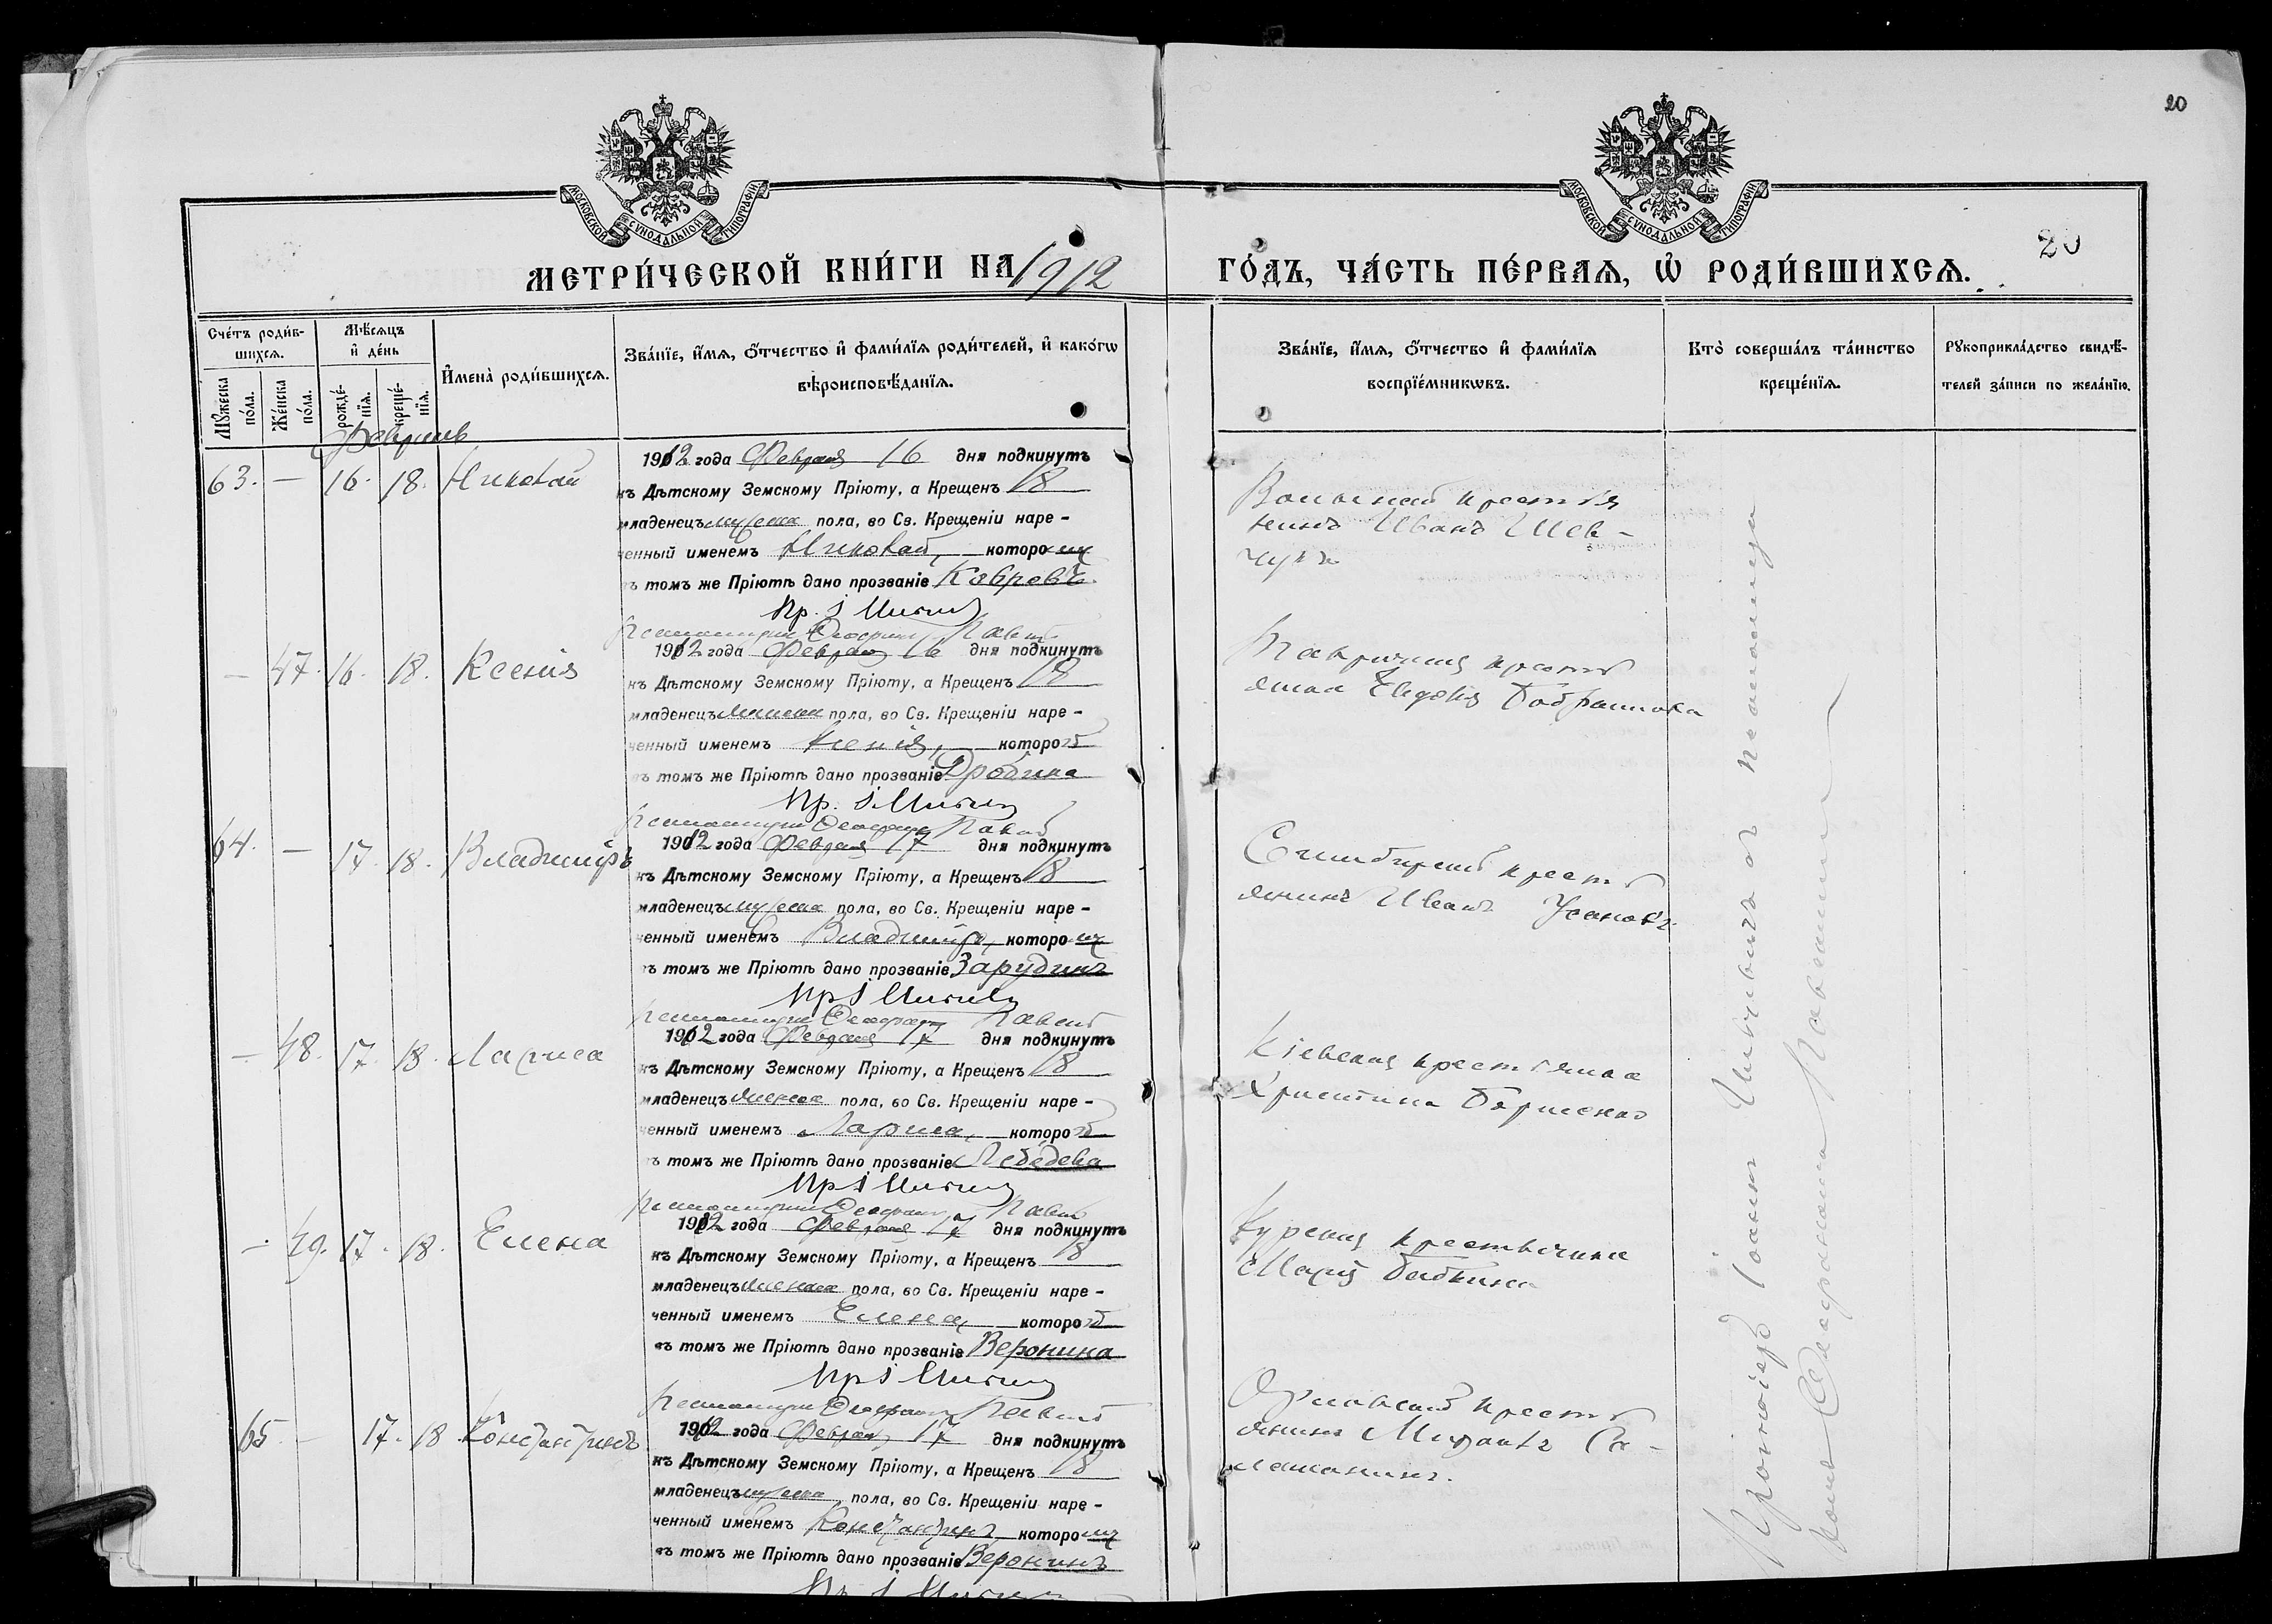 20
МОСКОВСКОЙ СУНОДАЛЬНОЙ ТИПОГРАФІИ
МОСКОВСКОЙ СУНОДАЛЬНОЙ ТИПОГРАФІИ
20
МЕТРИ́ЧЕСКОЙ КНИ́ГИ НА 1912
ГО́ДЪ, ЧА́СТЬ ПЕ́РВАѦ, Ѡ҆ РОДИ́ВШИХСѦ.
Сче́тъ роди́в-
шихсѧ.
Мꙋжеска по́ла.
Же́нска по́ла.
Мѣ́сѧцъ
и҆ де́нь
рожде́-
нїѧ.
креще́-
нїѧ.
И҆мена̀ роди́вшихсѧ.
Зва́нїе, и҆́мѧ, ѻ҆́тчество и҆ фами́лїѧ роди́телей, и҆ како́гѡ
вѣроисповѣ́данїѧ.
Зва́нїе, и҆́мѧ, ѻ҆́тчество и҆ фами́лїѧ
воспрїе́мникѡвъ.
Кто̀ соверша́лъ та́инство
креще́нїѧ.
Рꙋкоприкла́дство свидѣ́-
телей за́писи по жела́нїю.
Февраль
63. — 16. 18. Николай
1912 года Февраля 16 дня подкинутъ
къ Дѣтскому Земскому Пріюту, а Крещенъ 18
младенецъ мужска пола, во Св. Крещеніи наре-
ченный именемъ Николай, которому
въ томъ же Пріютѣ дано прозваніе Ковровъ.
Волынскій крестья
нинъ Иванъ Шев-
чукъ
— 47. 16. 18. Ксенія
1912 года Февраля 16 дня подкинутъ
къ Дѣтскому Земскому Пріюту, а Крещенъ 18
младенецъ женска пола, во Св. Крещеніи наре-
ченный именемъ Ксенія, которой
въ томъ же Пріютѣ дано прозваніе Дробина
крестъ
янка Евдокія
64. — 17. 18. Владиміръ
1912 года Февраля 17 дня подкинутъ
къ Дѣтскому Земскому Пріюту, а Крещенъ 18
младенецъ мужска пола, во Св. Крещеніи наре-
ченный именемъ Владиміръ, которому
въ томъ же Пріютѣ дано прозваніе Зарудинъ
Симбирскій кресть
янинъ Иванъ Усановъ.
— 48. 17. 18. Лариса
1912 года Февраля 17 дня подкинутъ
къ Дѣтскому Земскому Пріюту, а Крещенъ 18
младенецъ женска пола, во Св. Крещеніи наре-
ченный именемъ Лариса, которой
въ томъ же Пріютѣ дано прозваніе Лебедева
Кіевская крестьянка
Христина
— 49. 17. 18. Елена
1912 года Февраля 17 дня подкинутъ
къ Дѣтскому Земскому Пріюту, а Крещенъ 18
младенецъ женска пола, во Св. Крещеніи наре-
ченный именемъ Елена, которой
въ томъ же Пріютѣ дано прозваніе Веронина
Курская крестьянка
Марія Бабкина
65 — 17. 18 Константинъ
1912 года Февраля 17 дня подкинутъ
къ Дѣтскому Земскому Пріюту, а Крещенъ 18
младенецъ мужска пола, во Св. Крещеніи наре-
ченный именемъ Константинъ, которому
въ томъ же Пріютѣ дано прозваніе Веронинъ
Орловскій кресть
янинъ Михаилъ
Протоіерей Іоаннъ съ псаломщи
комъ